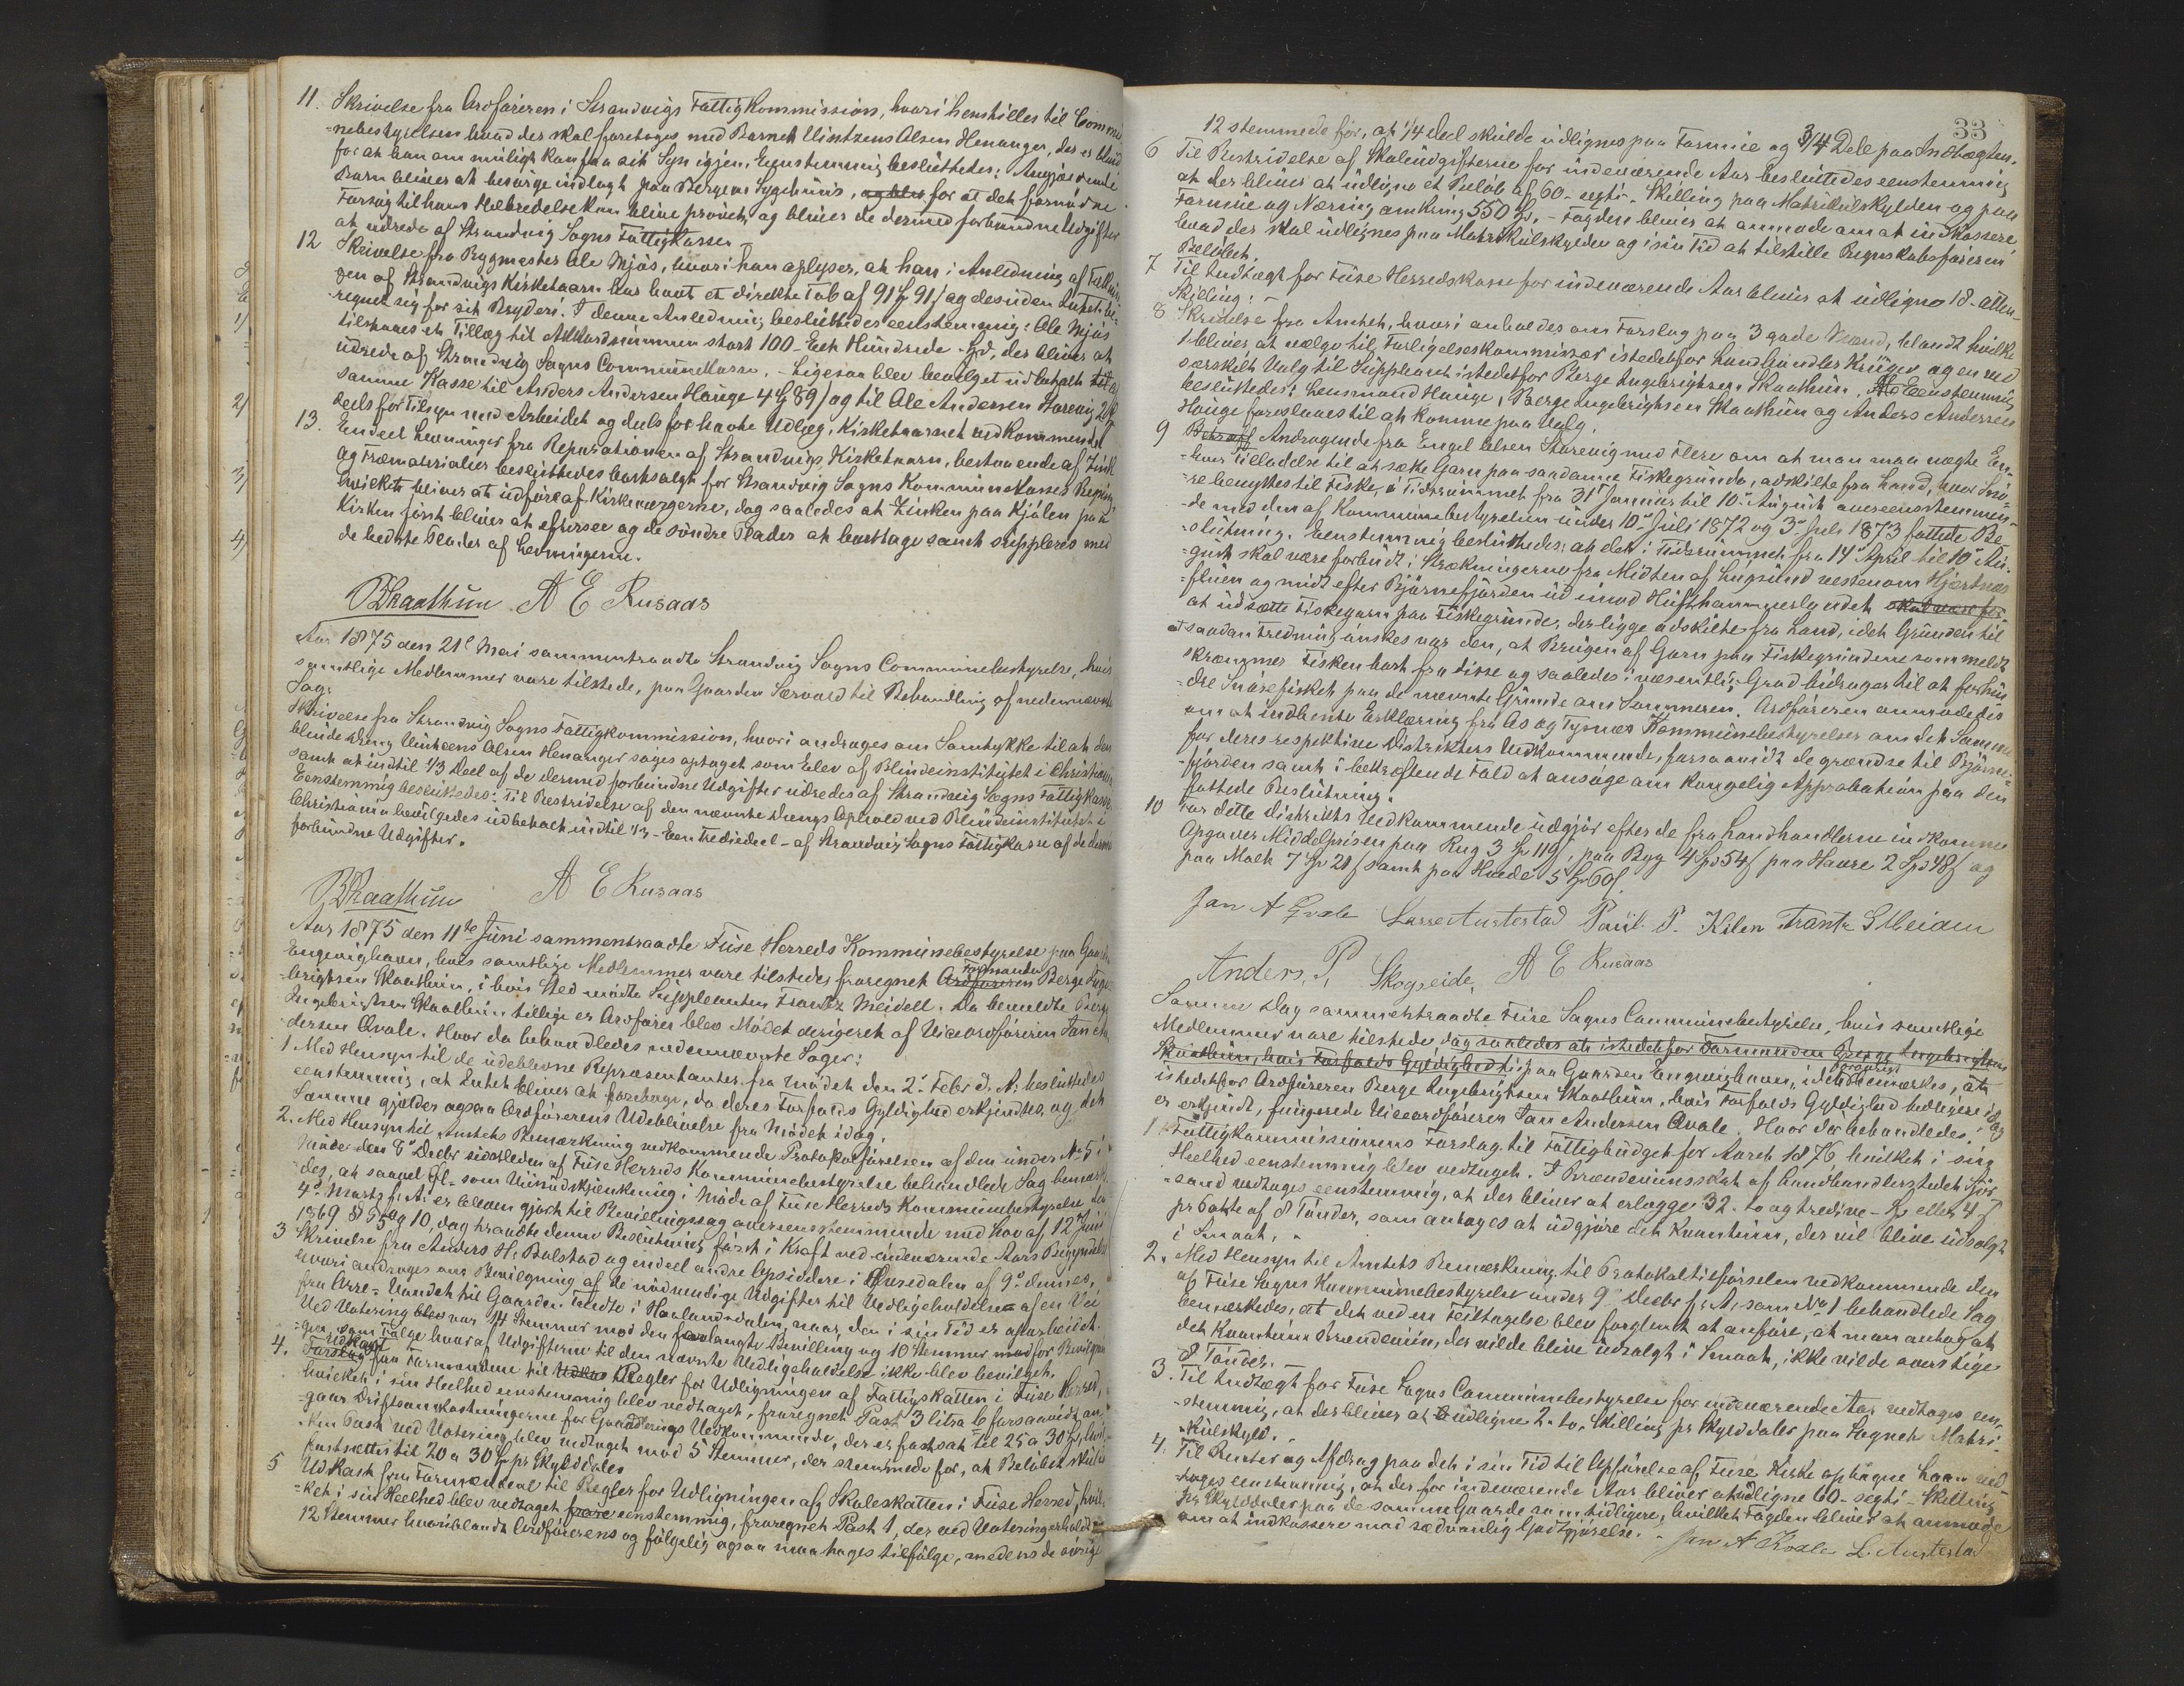 11. Skrivelse fra Ordføreren i Strandvigs Fattigkommission, hvori henstilles til Commu
=nebestyrelsen hvad der skal foretages med Barnet Vintzens Olsen Henanger, der er blind
for at han om muligt kan faa sit Syn igjen. Eenstemmig besluttedes: Angjældende
Barn bliver at besørge indlagt paa Bergens Sygehuus, og blev for at det fornødne
Forsøg til hans Helbredelse kan blive prøvet, og bliver de dermed forbundne Udgifter
at udrede af Strandvig Sogns Fattigkasse.
12 Skrivelse fra Bygmester Ole Mjøs, hvori han oplyser, at han i Anledning af
gen af Strandvigs Kirketaarn har havt et direkte Tab af 91 Sp 91 ß og desuden Intet be-
regnet sig for sit Bryderi. I denne Anledning besluttedes eenstemmig: Ole Mjøs
tilstaaes et Tillæg til Akkordsummen stort 100 - Eet Hundrede - Spd, der bliver at
udrede af Strandvig Sogns Communekasse. - Ligesaa blev bevilget udbetalt af
samme Kasse til Anders Andersen Hauge 4 Sp 89 ß og til Ole Andersen Storevig 2 Sp
deels for Tilsyn med Arbeidet og deels for havte Udlæg, Kirketaarnet vedkommende.
13. Endeel Levninger fra Reparationen af Strandvigs Kirketaarn, bestaaende af Zink
og Træmaterialier besluttedes bortsolgt for Strandvig Sogns Kommunekasses Regning
hvilket bliver at udføre af Kirkeværgerne, dog saaledes at Zinken paa Kjølen paa
Kirken først bliver at efterse og de søndre Plader at borttage samt suppleres med
de bedste Plader af Levningerne.
B Skaathun A E Rusaas
Aar 1875 den 21de Mai sammentraadte Strandvig Sogns Communebestyrelse, hvis
samtlige Medlemmer vare tilstede, paa Gaarden Særvold til Behandling af nedennævnte
Sag:
Skrivelse fra Strandvig Sogns Fattigkommission, hvori andrages om Samtykke til at den
blinde Dreng Vintzens Olsen Henanger søges optaget som Elev af Blindeinstitutet i Christiania
samt at indtil 1/3 Deel af de dermed forbundne Udgifter udredes af Strandvig Sogns Fattigkasse.
Eenstemmig besluttedes: Til Bestridelse af den nævnte Drengs Ophold ved Blindeinstitutet i
Christiania bevilgedes udbetalt indtil 1/3 - Een Trediedeel - af Strandvig Sogns Fattigkasse af de dermed
forbundne Udgifter.
B Skaathun A E Rusaas
Aar 1875 den 11te Juni sammentraadte Fuse Herreds Kommunebestyrelse paa Gaarden
Engevighavn, hvis samtlige Medlemmer vare tilstede, fraregnet Ordføreren Formanden Berge Inge-
brigtsen Skaathun, i hvis Sted mødte Suppleanten Frantz Meidell. Da bemeldte Berge
Ingebrigtsen Skaathun tillige er Ordfører blev Mødet dirigeret af Viceordføreren Jan An-
dersen Qvale. Hvor da behandledes nedennævnte Sager:
1 Med Hensyn til de udeblevne Repræsentanter fra Mødet den 2den Febr d. A. besluttedes
eenstemmig, at Intet bliver at foretage, da deres Forfalds Gyldighed erkjendtes, og det
Samme gjælder ogsaa Ordførerens Udeblivelse fra Mødet idag.
2. Med Hensyn til Amtets Bemærkning vedkommende Protokolførelsen af den under No 5 i
Møde den 8de Decbr sidstleden af Fuse Herreds Kommunebestyrelse behandlede Sag bemærke-
des, at saavel Øl- som Viinudskjænkning i Møde af Fuse Herreds Kommunebestyrelse den
4de Marts f. A. er bleven gjort til Bevillingssag overeensstemmende med Lov af 12 Juni
1869 §§ 5 og 10, dog traadte denne Beslutning først i Kraft ved indeværende Aars Begyndelse
3 Skrivelse fra Anders H. Bolstad og endeel andre Opsiddere i Fusedalen af 9de dennes,
hvori andrages om Bevilgning af de nødvendige Udgifter til Vedligeholdelse af en Vei
fra Orre-Vandet til Gaarden Tveite i Haalandsdalen, naar den i sin Tid er oparbeidet.
Ved Votering blev var 14 Stemmer mod den forlangte Bevilling og 10 Stemmer mod for Bevilgnin
gen, som Følge hvoraf Udgifterne til den nævnte Vedligeholdelse ikke blev bevilget.
4. Forslag Udkast fra Formændene til Udkas Regler for Udligningen af Fattigskatten i Fuse Herred,
hvilket i sin Heelhed eenstemmig blev vedtaget, fraregnet Post 3 litra b forsaavidt an-
gaar Driftsomkostningerne for Gaardbrugs Vedkommende, der er fastsat til 25 a 30 Sp, hvil-
ken Post ved Votering blev vedtaget mod 5 Stemmer, der stemmede for, at Beløbet skulde
fastsættes til 20 a 30 Sp pr Skylddaler
5 Udkast fra Formændene til Regler for Udligningen af Skoleskatten i Fuse Herred, hvil-
ket i sin Heelhed blev vedtaget eenstemmig, fraregnet Post 1, der ved Votering erholdt
12 Stemmer hvoriblandt Ordførerens og følgelig ogsaa maa tages tilfølge, medens de øvrige
33
12 stemmede for, at 1/4 Deel skulde udlignes paa Formue og 3/4 Dele paa Indtægten.
6 Til Bestridelse af Skoleudgifterne for indeværende Aar besluttedes eenstemmig
at der bliver at udligne et Beløb af 60 - sexti - Skilling paa Matrikulskylden og paa
Formue og Næring omkring 550 Sp. - Fogden bliver at anmode om at indkassere
hvad der skal udlignes paa Matrikulskylden og i sin Tid at tilstille Regnskabsføreren
Beløbet.
7 Til Indtægt for Fuse Herredskasse for indeværende Aar bliver at udligne 18 - atten -
Skilling. -
8 Skrivelse fra Amtet, hvori anholdes om Forslag paa 3 gode Mænd, blandt hvilke
1 bliver at vælge til Forligelseskommissær istedetfor Landhandler Krüger og en ved
særskilt Valg til Suppleant istedetfor Berge Ingebrigtsen Skaathun. Eenstemmig
besluttedes: Lensmand Hauge, Berge Ingebrigtsen Skaathun og Anders Andersen
Hauge foreslaaes til at komme paa Valg.
9 Andragende fra Engel Olsen Storevig med Flere om at man maa nægte En-
hver Tilladelse til at sætte Garn paa saadanne Fiskegrunde, adskilte fra Land, hvor Snø-
re benyttes til Fiske, i Tidsrummet fra 31te Januar til 10de August overeensstemmen-
de med den af Kommunebestyrelsen under 10de Juli 1872 og 3de Juli 1873 fattede Be-
slutning. Eenstemmig besluttedes, at det i Tidsrummet fra 14de April til 10de Au-
gust skal være forbudt i Strækningerne fra Midten af Lugsund vestenom Hjertnæs
fluen og midt efter Bjørnefjorden ud imod Hufthammerlandet skal være for
at udsætte Fiskegarn paa Fiskegrunde, der ligge adskilte fra Land, idet Grunden til
at saadan Fredning ønskes var den, at Brugen af Garn paa Fiskegrundene som meldt
skræmmer Fisken bort fra disse og saaledes i væsentlig Grad bidrager til at forhin-
dre Snørefisket paa de nævnte Grunde om Sommeren. Ordføreren anmodedes
om at indhente Erklæring fra Os og Tysnæs Kommunebestyrelser om det Samme
for deres respektive Distrikters Vedkommende, forsaavidt de grændse til Bjørne-
fjorden samt i bekræftende Fald at ansøge om kongelig Approbation paa den
fattede Beslutning.
10 For dette Distrikts Vedkommende udgjør efter de fra Landhandlerne indkomne
Opgaver Middelprisen paa Rug 3 Sp 119 ß, paa Byg 4 Spd 54 ß paa Havre 2 Spd 48 ß og
paa Malt 7 Sp 21 ß samt paa Hvede 5 Sp 60 ß.
Jan A Qvale Lasse Austestad Poul. P. Kilen Frantz S Meidell
Anders. P. Skogseide, A E Rusaas
Samme Dag sammentraadte Fuse Sogns Communebestyrelse, hvis samtlige
Medlemmer vare tilstede, dog saaledes at istedetfor Formanden Berge Ingebrigtsen
Skaathun, hvis Forfalds Gyldighed paa Gaarden Engevighavn, idet bemærkes, at
istedetfor Ordføreren Berge Ingebrigtsen Skaathun, hvis Forfalds Gyldighed
er erkjendt, fungerede Viceordføreren Jan Andersen Qvale. Hvor da behandledes:
1 Fattigkommissionens Forslag til Fattigbudget for Aaret 1876 hvilket i sin
Heelhed eenstemmig blev vedtaget. I Brændeviinsskat af Landhandlerstedet Gjør-
sand vedtages eenstemmig, at der bliver at erlægge 32 - to og tredive - Sp eller 4 ß
pr Potte af 8 Tønder, som antages at udgjøre det Kvantum, der vil blive udsolgt
i Smaat.
2. Med Hensyn til Amtets Bemærkning til Protokoltilførselen vedkommende den
af Fuse Sogns Kommunebestyrelse under 9de Decbr f. A. som No 1 behandlede Sag
bemærkedes, at det ved en Feiltagelse blev forglemt at anføre, at man antog at
det Kvantum Brændeviin, der vilde blive udsolgt i Smaat, ikke vilde overstige
8 Tønder.
3. Til Indtægt for Fuse Sogns Communebestyrelse for indeværende Aar vedtages een-
stemmig, at der bliver at udligne 2 - to - Skilling pr Skylddaler paa Sognets Matri-
kulskyld. -
4. Til Renter og Afdrag paa det i sin Tid til Opførelse af Fuse Kirke optagne Laan ved-
toges eenstemmig, at der for indeværende Aar bliver at udligne 60 - sexti - Skilling
pr Skylddaler paa de samme Gaarde som tidligere, hvilket Fogden bliver at anmode
om at indkassere mod sædvanlig Godtgjørelse. - Jan A Qvale L. Austestad